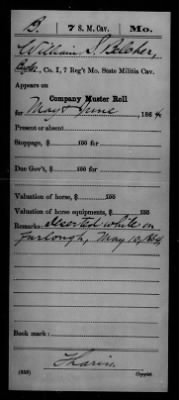 B. 7 S. M. Cav. Mo.
William S. Belcher,
, Co. I, 7 Reg't Mo. State Militia Cav.
Appears on
Company Muster Roll
for May & June, 1864
Present or absent
Stoppage, $ 100 for
Due Gov't, $ 100 for
Valuation of horse, $ 100
Valuation of horse equipments, $ 100
Remarks: deserted while on
furlough, May 10, 1864
Book mark:
(858) Copyist.